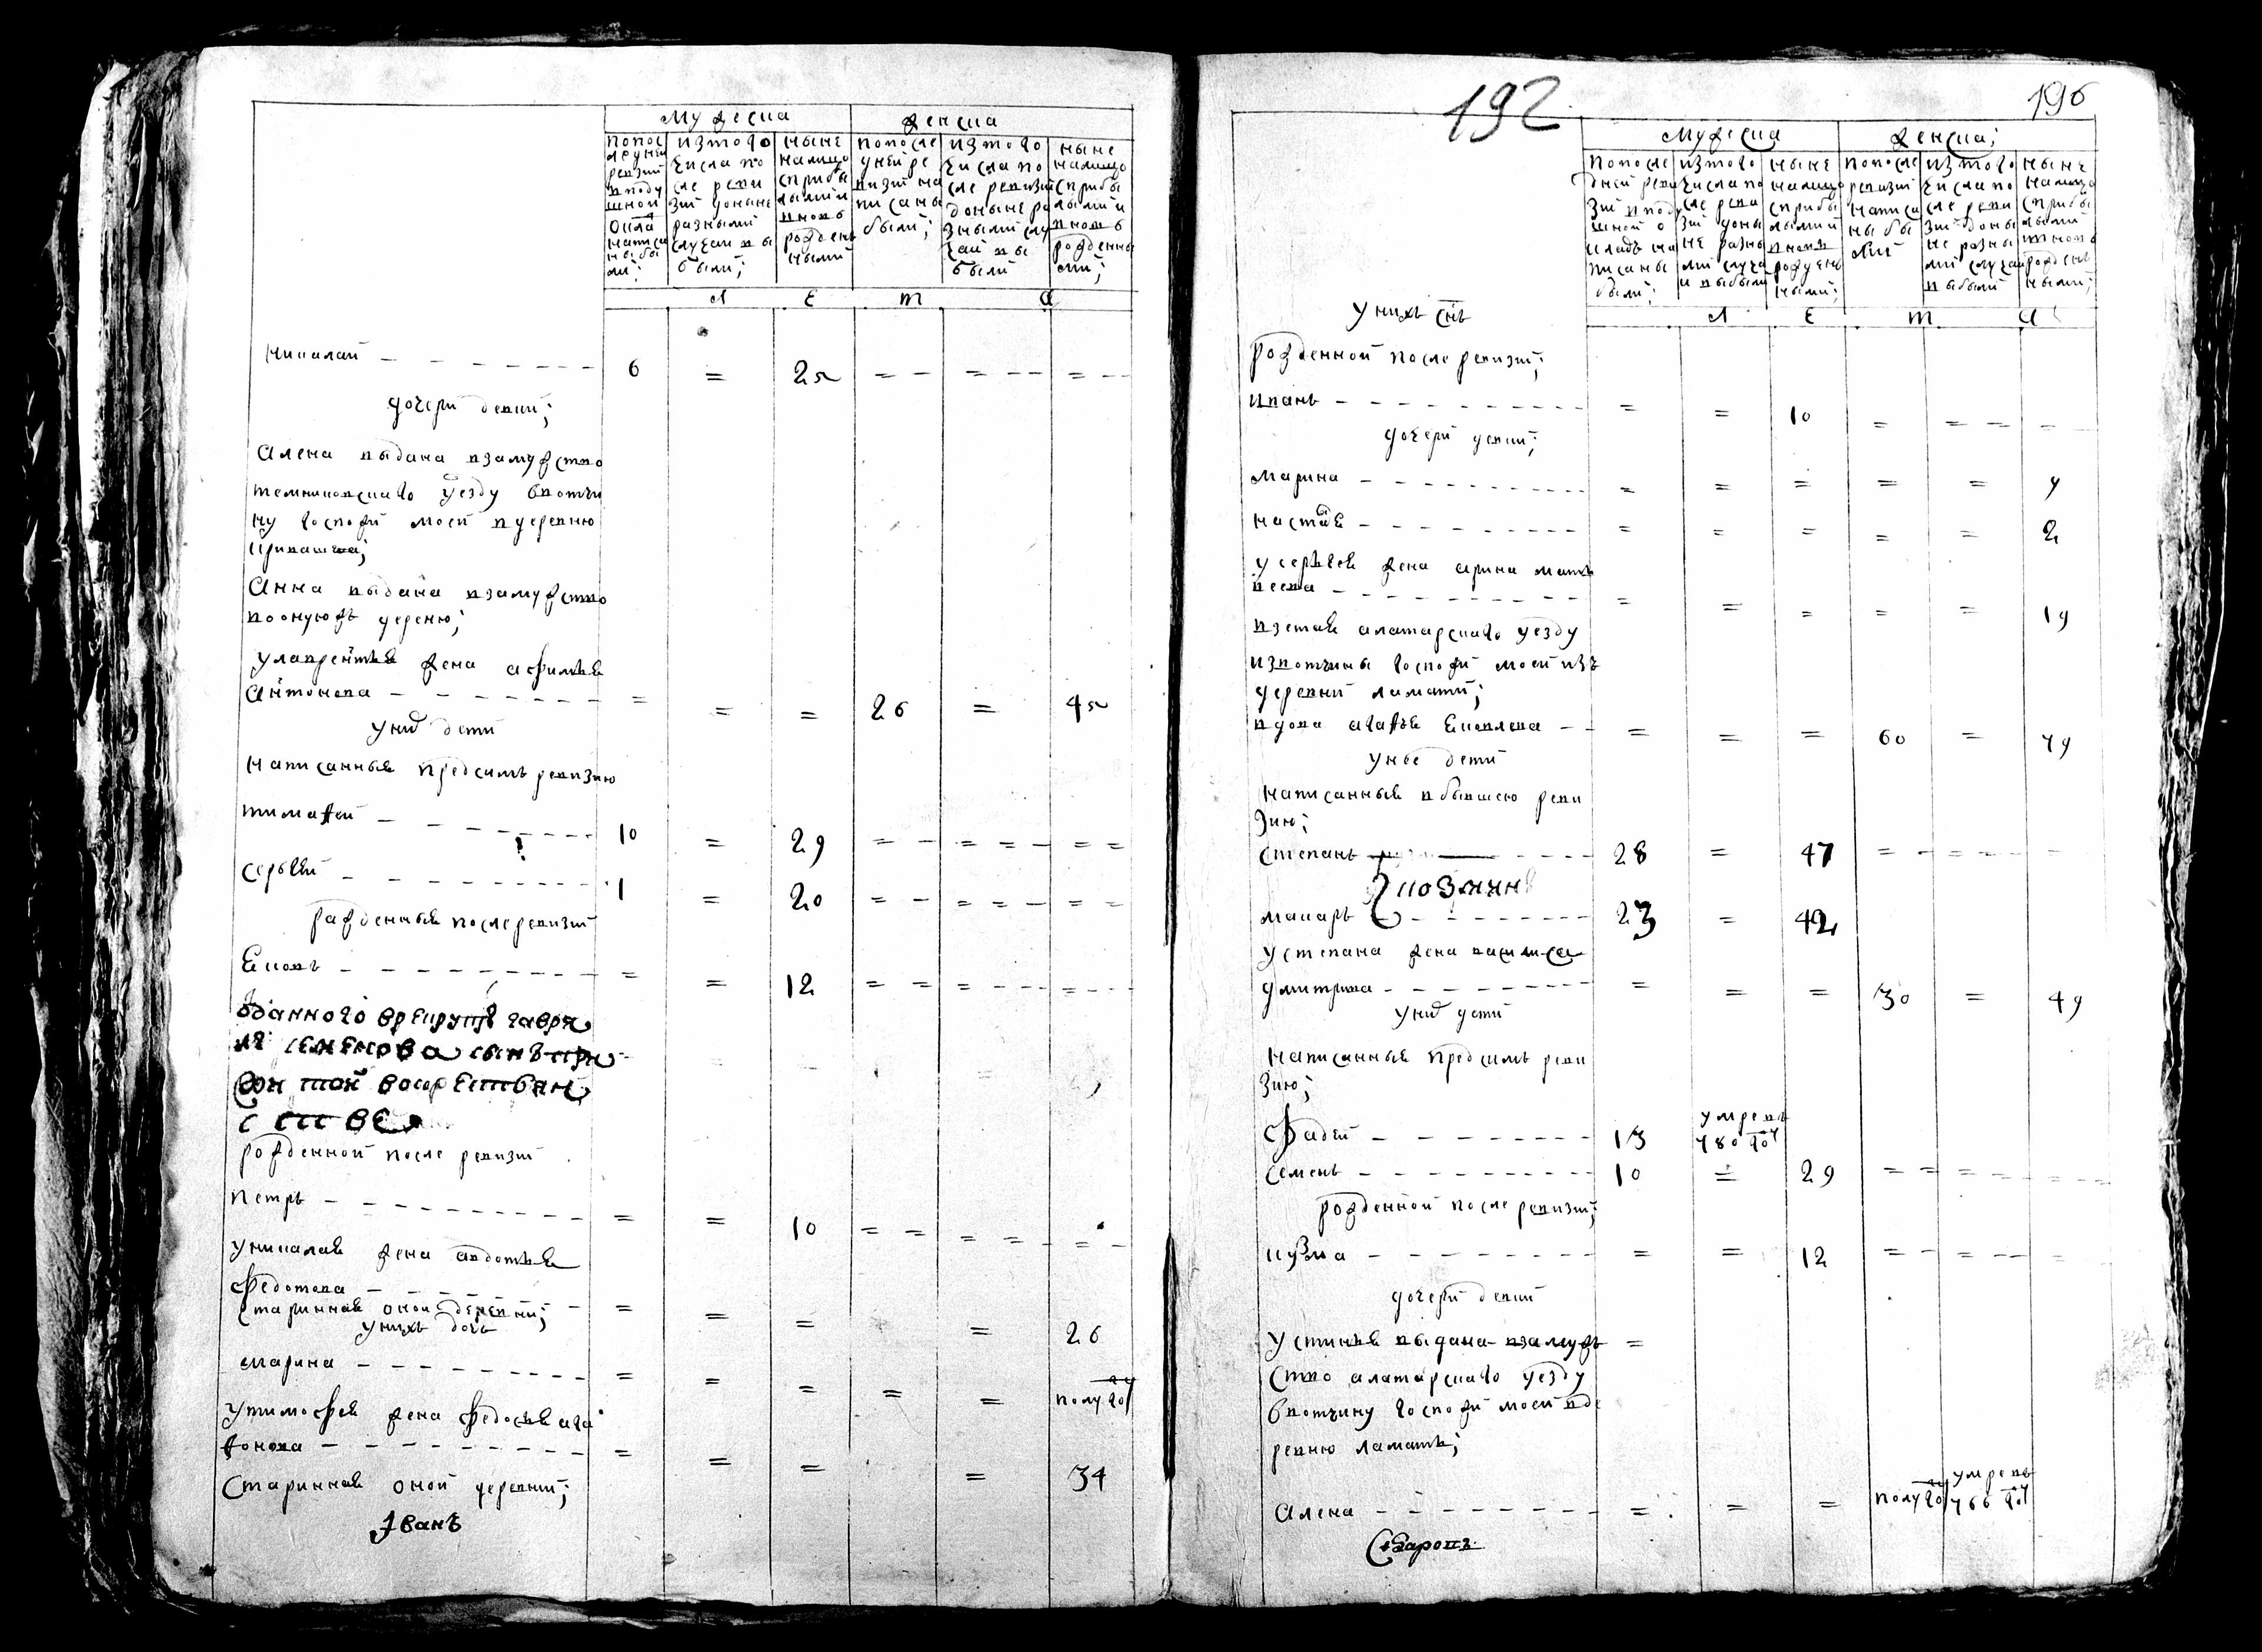 мужеска
женска
по пос
ледней
ревизии
в поду
шной
окла
написа
ны бы
ли;
из того
числа по
сле реви
зии доныне
разными
случаи вы
были;
ныне
налицо
с прибы
лыми и
вновь
рожден
ными
по после
дней ре
визии на
писаны
были;
из того
числа по
сле ревизии
доныне ра
зными слу
чаи вы
были
ныне
налицо
с прибы
лыми и
вновь
рожденны
ми;
л е т а
николай 6 = 25 = = =
дочери девки;
Алена выдана взамужство
темниковскаго уезду вотчи
ну госпожи моей в деревню
Анна выдана взамужство
во оную жъ деревню;
у лаврентья жена афимья
Антонова = = = 26 = 45
у них дети
написанныя пред сим ревизию
тимофей 10 = 29 = = =
сергей 1 = 20 = = =
рожденныя после ревизии
Яковъ = = 12 = = =
рожденной после ревизии
петръ = = 10 = = =
у николая жена авдотья
Федотова
старинная оной деревни; = = = = 26
у нихъ дочь
марина = = = = = полугоду
у тимофея жена федосья ага
фонова = = = = 34
старинная оной деревни;
Иванъ
192
196
мужеска
женска;
по после
дней реви
зии в поду
шной о
кладъ на
писаны
были;
из того
числа по
сле реви
зии доны
не разны
ми случа
и выбыли
ныне
налицо
с прибы
лыми и
вновь
рожден
ными;
по после
ревизии
написа
ны бы
ли
из того
числа по
сле реви
зии доны
не разны
ми случаи
выбыли
ныне
налицо
с прибы
лыми и
вновь
рожден
ными;
л е т а
у нихъ снъ
рожденной после ревизии;
иванъ = = 10 = = =
дочери девки;
марина = = = = = 9
настася = = = = = 2
у сергея жена арина матв
веева = = = = = 19
взетая алатарскаго уезду
из вотчины госпожи моей изъ
деревни ламати;
вдова агафья Яковлева = = = 60 = 79
у нее дети
написанныя в бывшею реви
зию;
степанъ 28 = 47 = = =
макаръ 23 = 42
у степана жена василиса
дмитрива = = = 30 = 49
у них дети
написанныя пред симъ реви
зию;
Фадей 13 умревъ 780 год
семенъ 10 = 29 = =
рожденной после ревизии;
кузма = = 12 = = =
дочери девки
устинья выдана взамужъ =
ство алатарскаго уезду
вотчину госпожи моей в де
ревню ламать;
алена = = = полугоду умревъ 766 год